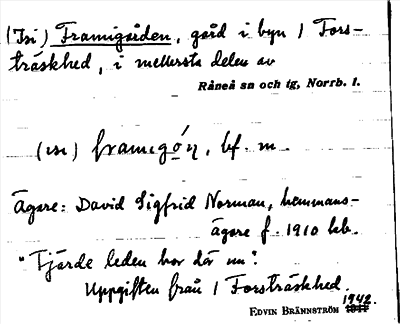 (Isi) Framigården, gård i byn 1 Fors-
träskhed, i mellersta delen av
Råneå sn och tg, Norrb. l.
(ɪsɪ) framɪgó̱ɳ, bf. m.
Ägare: David Sigfrid Norman, hemmans-
ägare f. 1910 hb.
"Fjärde leden bor där nu".
Uppgiften från 1 Forsträskhed.
1942.
EDVIN BRÄNNSTRÖM 1941